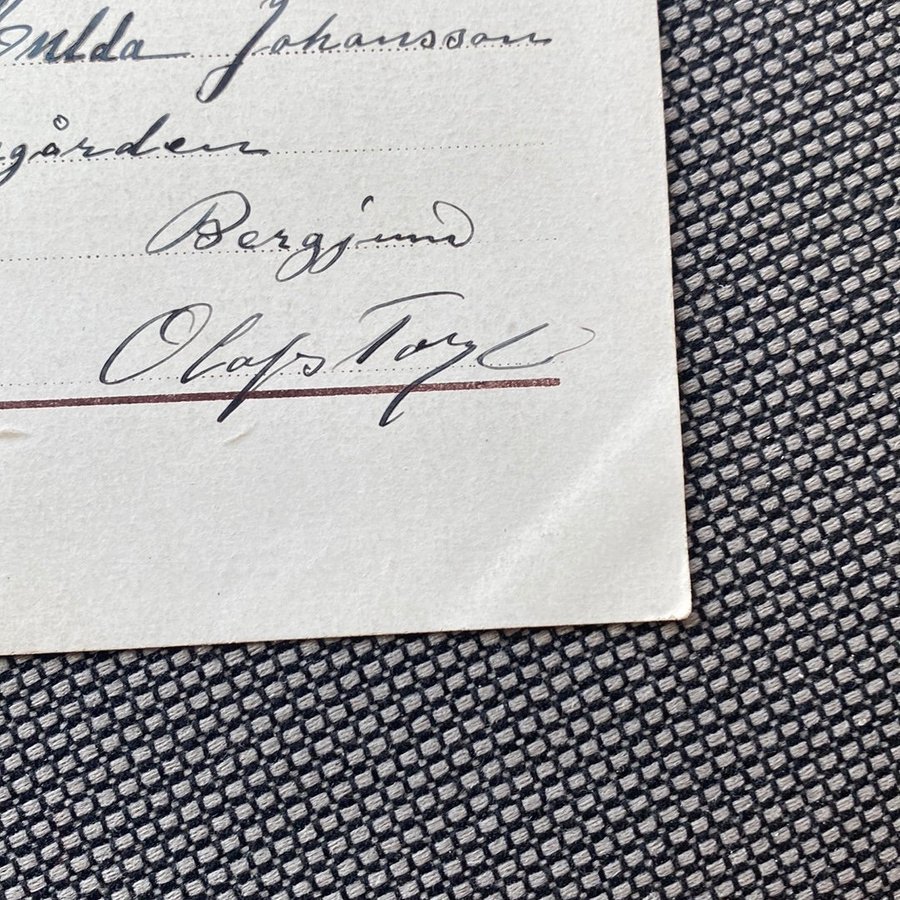 Hulda Johansson
gården
Bergjum
Olofs Torp